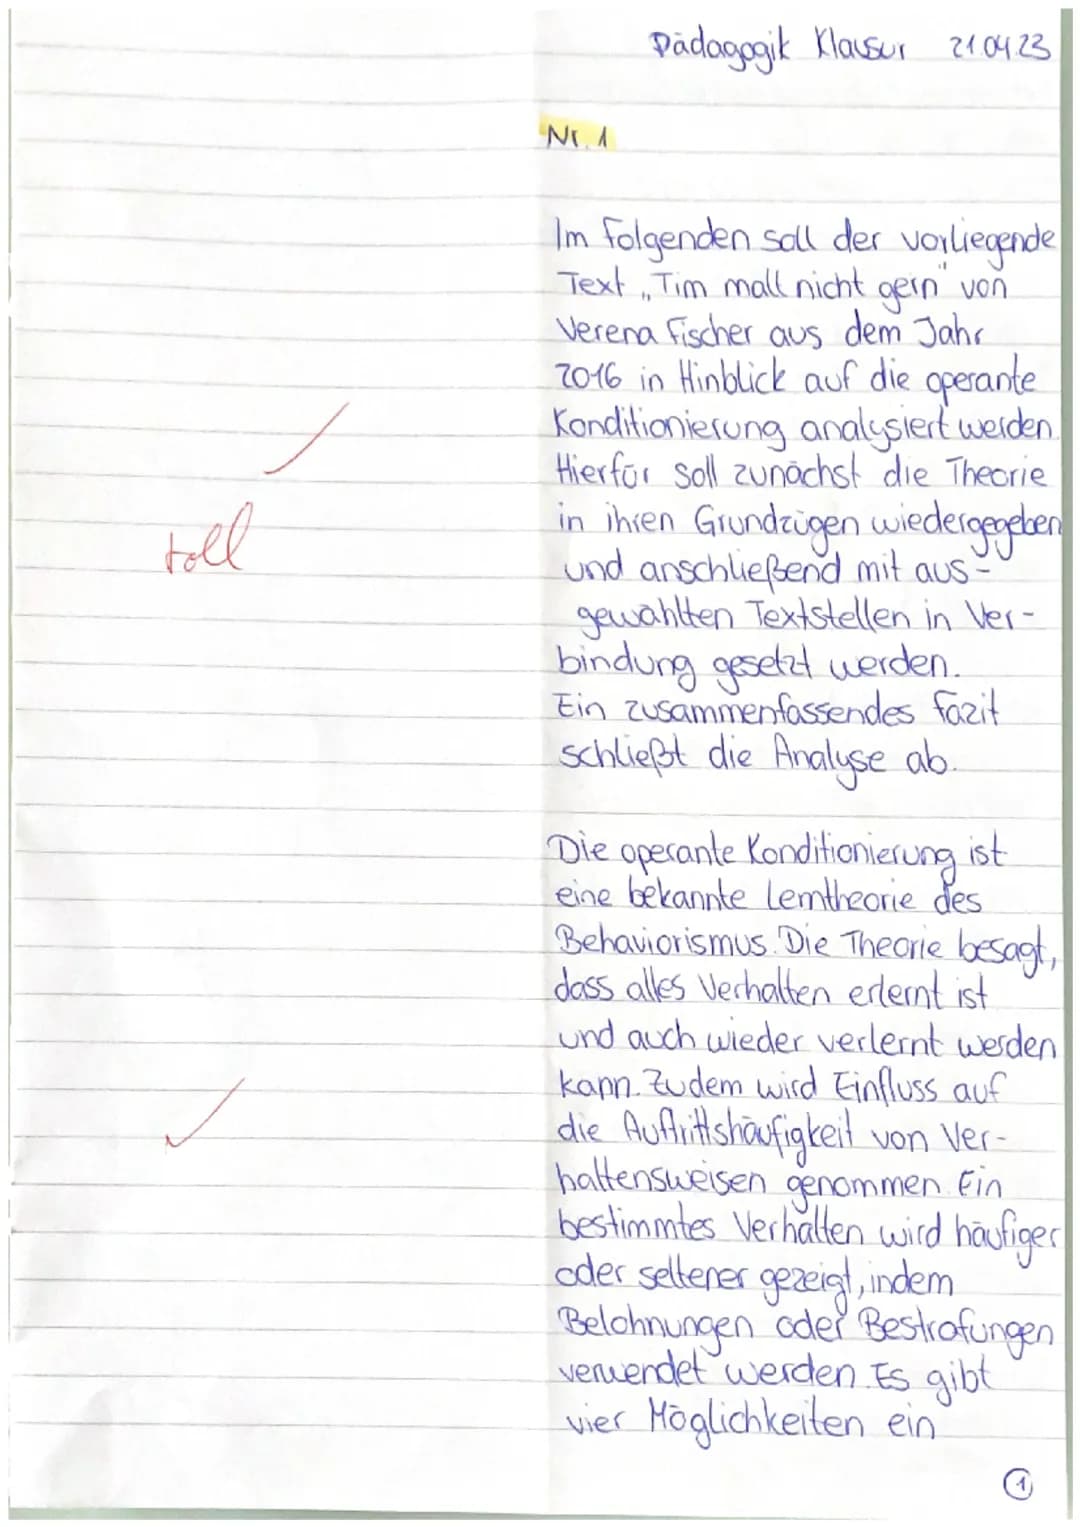 Pädagogik Klausur 21.04.23
Nr. 1
Im Folgenden soll der vorliegende
Text „Tim malt nicht gern" von
Verena Fischer aus dem Jahr
2016 in Hinblick auf die operante
Konditionierung analysiert werden.
Hierfür soll zunächst die Theorie
in ihren Grundzügen wiedergegeben
toll
und anschließend mit aus-
gewählten Textstellen in Ver-
bindung gesetzt werden.
Ein zusammenfassendes Fazit
schließt die Analyse ab.
Die operante Konditionierung ist
eine bekannte Lerntheorie des
Behaviorismus. Die Theorie besagt,
dass alles Verhalten erlernt ist
und auch wieder verlernt werden
kann. Zudem wird Einfluss auf
die Auftrittshäufigkeit von Ver-
haltensweisen genommen. Ein
bestimmtes Verhalten wird häufiger
oder seltener gezeigt, indem
Belohnungen oder Bestrafungen
verwendet werden. Es gibt
vier Möglichkeiten ein
1